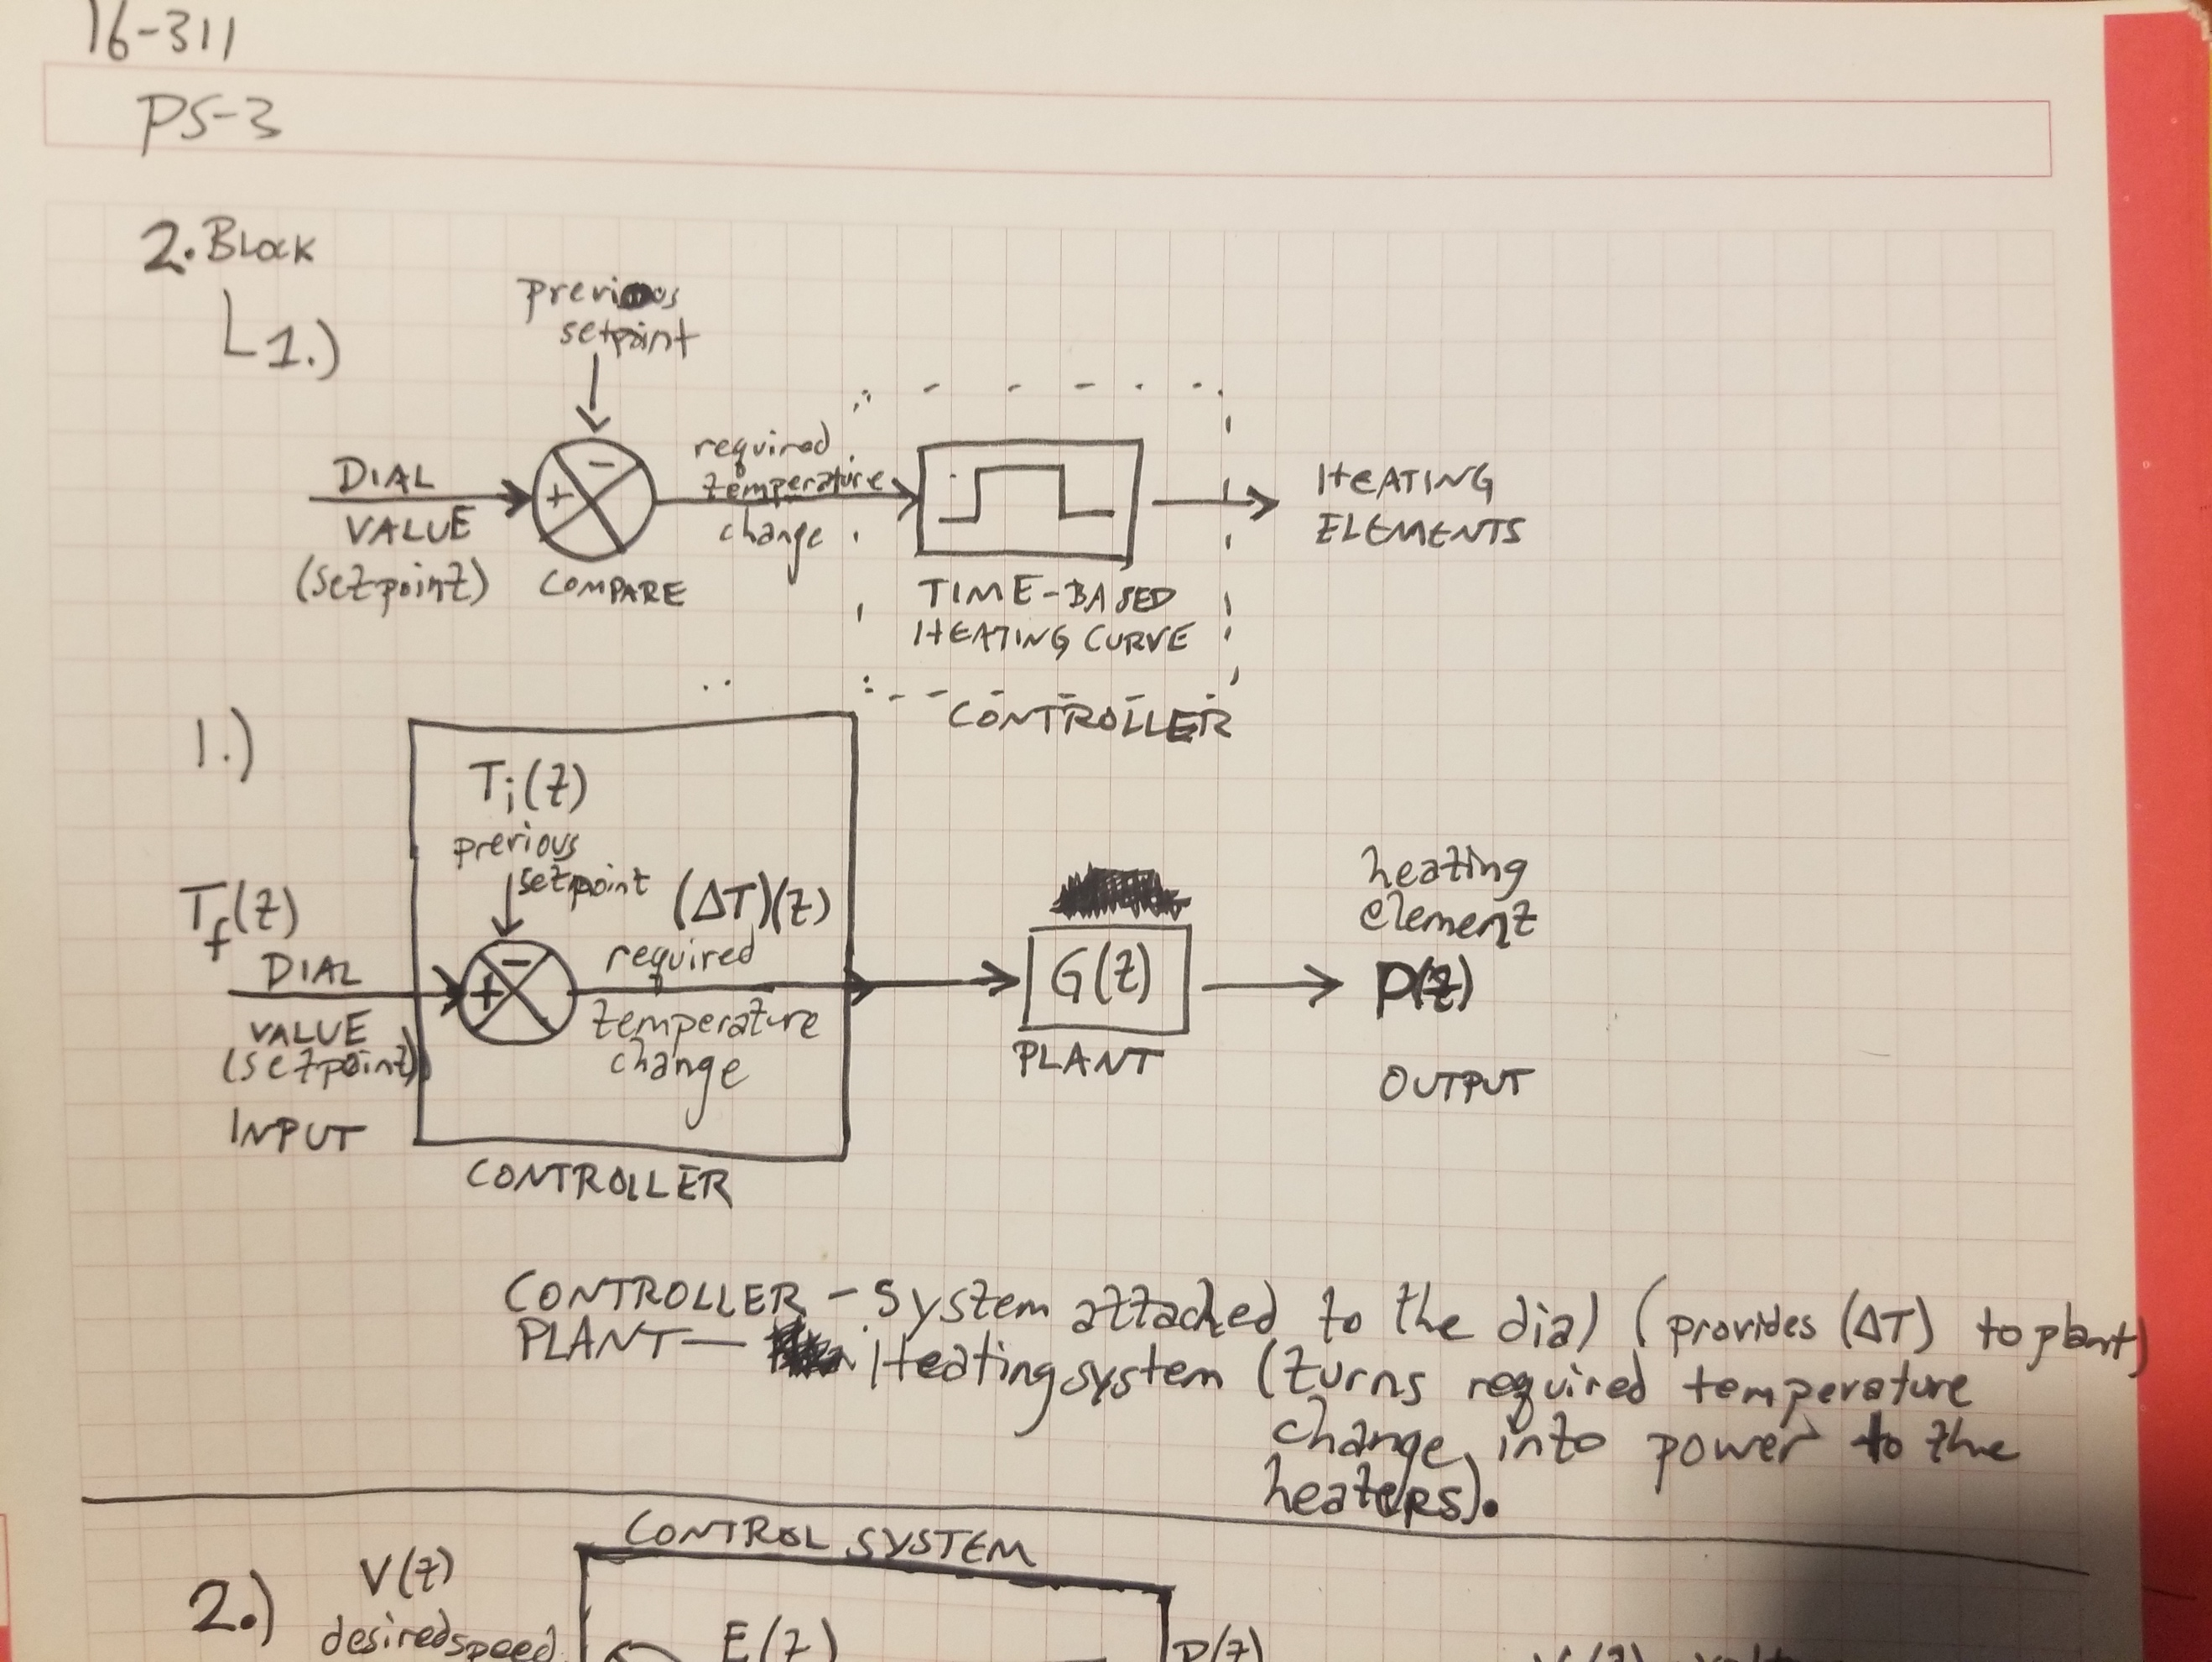 16-311
PS-3
2. BLOCK
1.)
previous
setpoint
DIAL
VALUE
(setpoint)
+
-
COMPARE
required
temperature
change
TIME-BASED
HEATING CURVE
CONTROLLER
HEATING
ELEMENTS
1.)
Ti(z)
previous
setpoint
(ΔT)(z)
Tf(z)
DIAL
VALUE
(setpoint)
INPUT
+
-
required
temperature
change
CONTROLLER
G(z)
PLANT
heating
element
P(z)
OUTPUT
CONTROLLER - System attached to the dial (provides (ΔT) to plant)
PLANT - Heating system (turns required temperature
change into power to the
heaters).
CONTROL SYSTEM
2.)
V(z)
desired speed
E(z)
P(z)